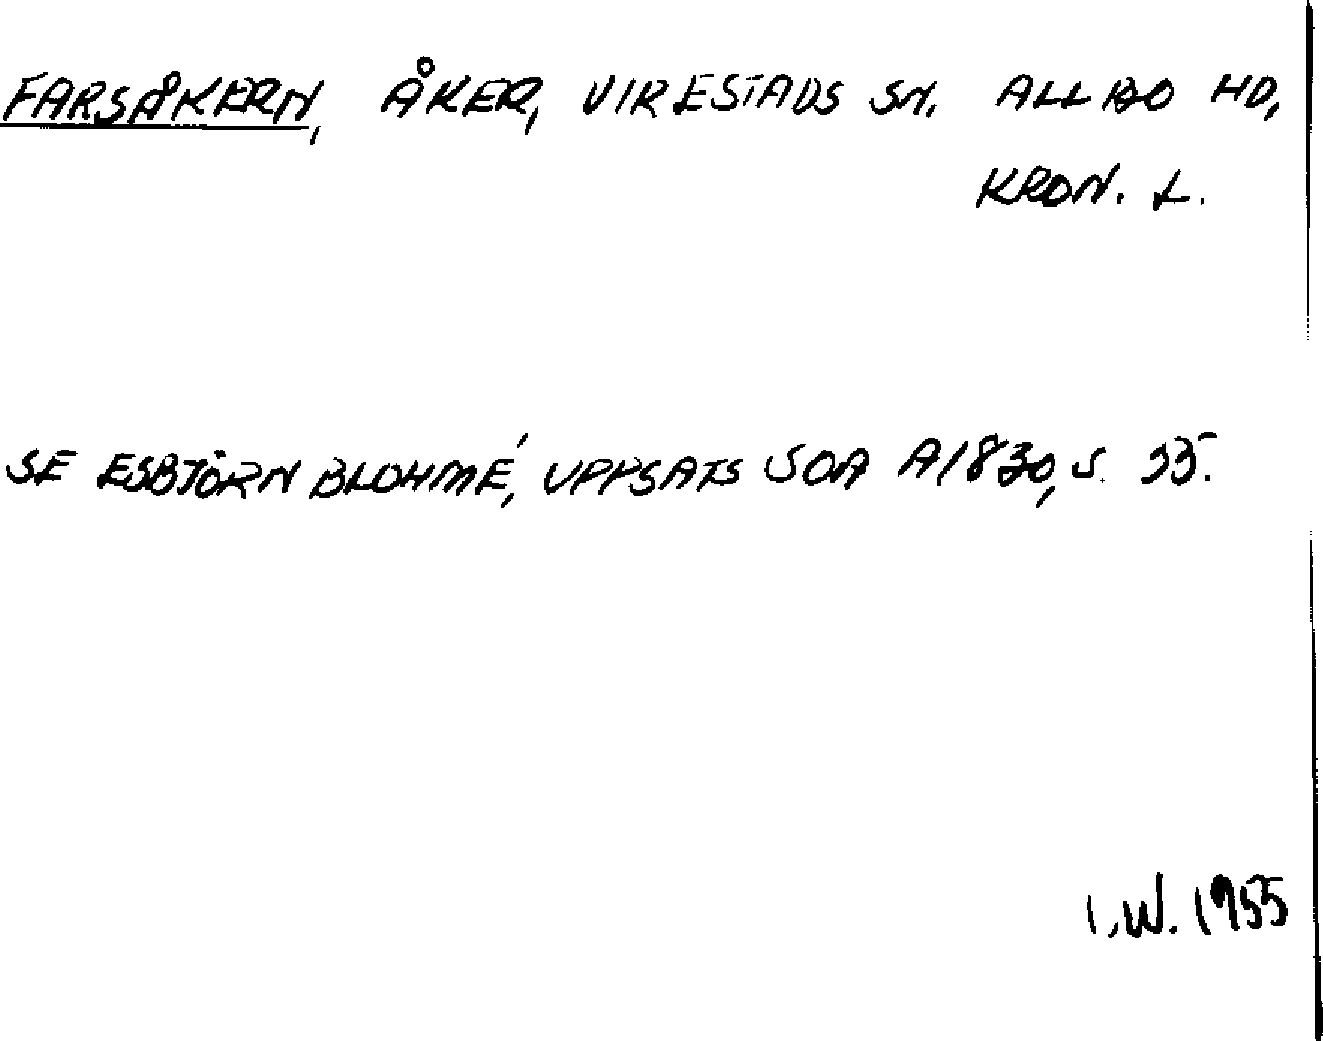 FARSÅKERN, ÅKER, VIRESTADS SN. ALLBO HD,
KRON. L.
SE ESBJÖRN BLOHMÉ, UPPSATS SOA A1830, S. 35.
I.W. 1955